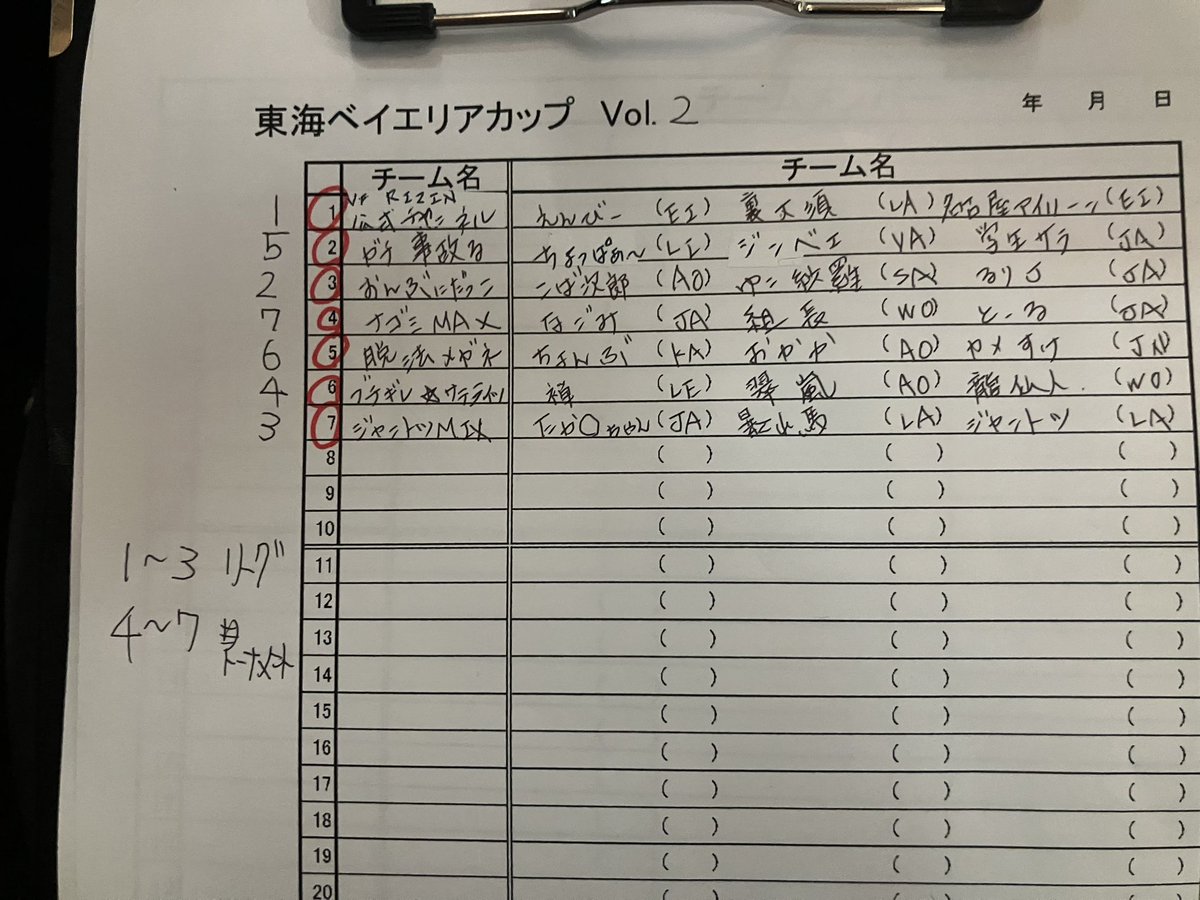 東海ベイエリアカップ Vol. 2 年 月 日
チーム名 チーム名
1 1 VF RIZIN 公式チャンネル えんびー (EI) (LA) 名古屋アイリーン (EI)
5 2 ガチ事故る ちょっぱぁ〜 (LI) ジンベエ (VA) 学生サラ (JA)
2 3 おんぶにだっこ こば次郎 (AO) (SA) るりよ (JA)
7 4 ナゴミMAX なごみ (JA) 組長 (WO) と、る (JA)
6 5 脱法メガネ ちょんぶ (KA) おかか (AO) ヤメすけ
4 6 ブチギレ☆ (LE) 翠嵐 (AO) 龍仙人. (WO)
3 7 ジャントツMIX たか〇ちゃん (JA) (LA) ジャントツ (LA)
8 ( ) ( ) ( )
9 ( ) ( ) ( )
10 ( ) ( ) ( )
1〜3 リーグ 11 ( ) ( ) ( )
12 ( ) ( ) ( )
4〜7 13 ( ) ( ) ( )
トーナメント 14 ( ) ( ) ( )
15 ( ) ( ) ( )
16 ( ) ( ) ( )
17 ( ) ( ) ( )
18 ( ) ( ) ( )
19 ( ) ( ) ( )
20 ( ) ( ) ( )